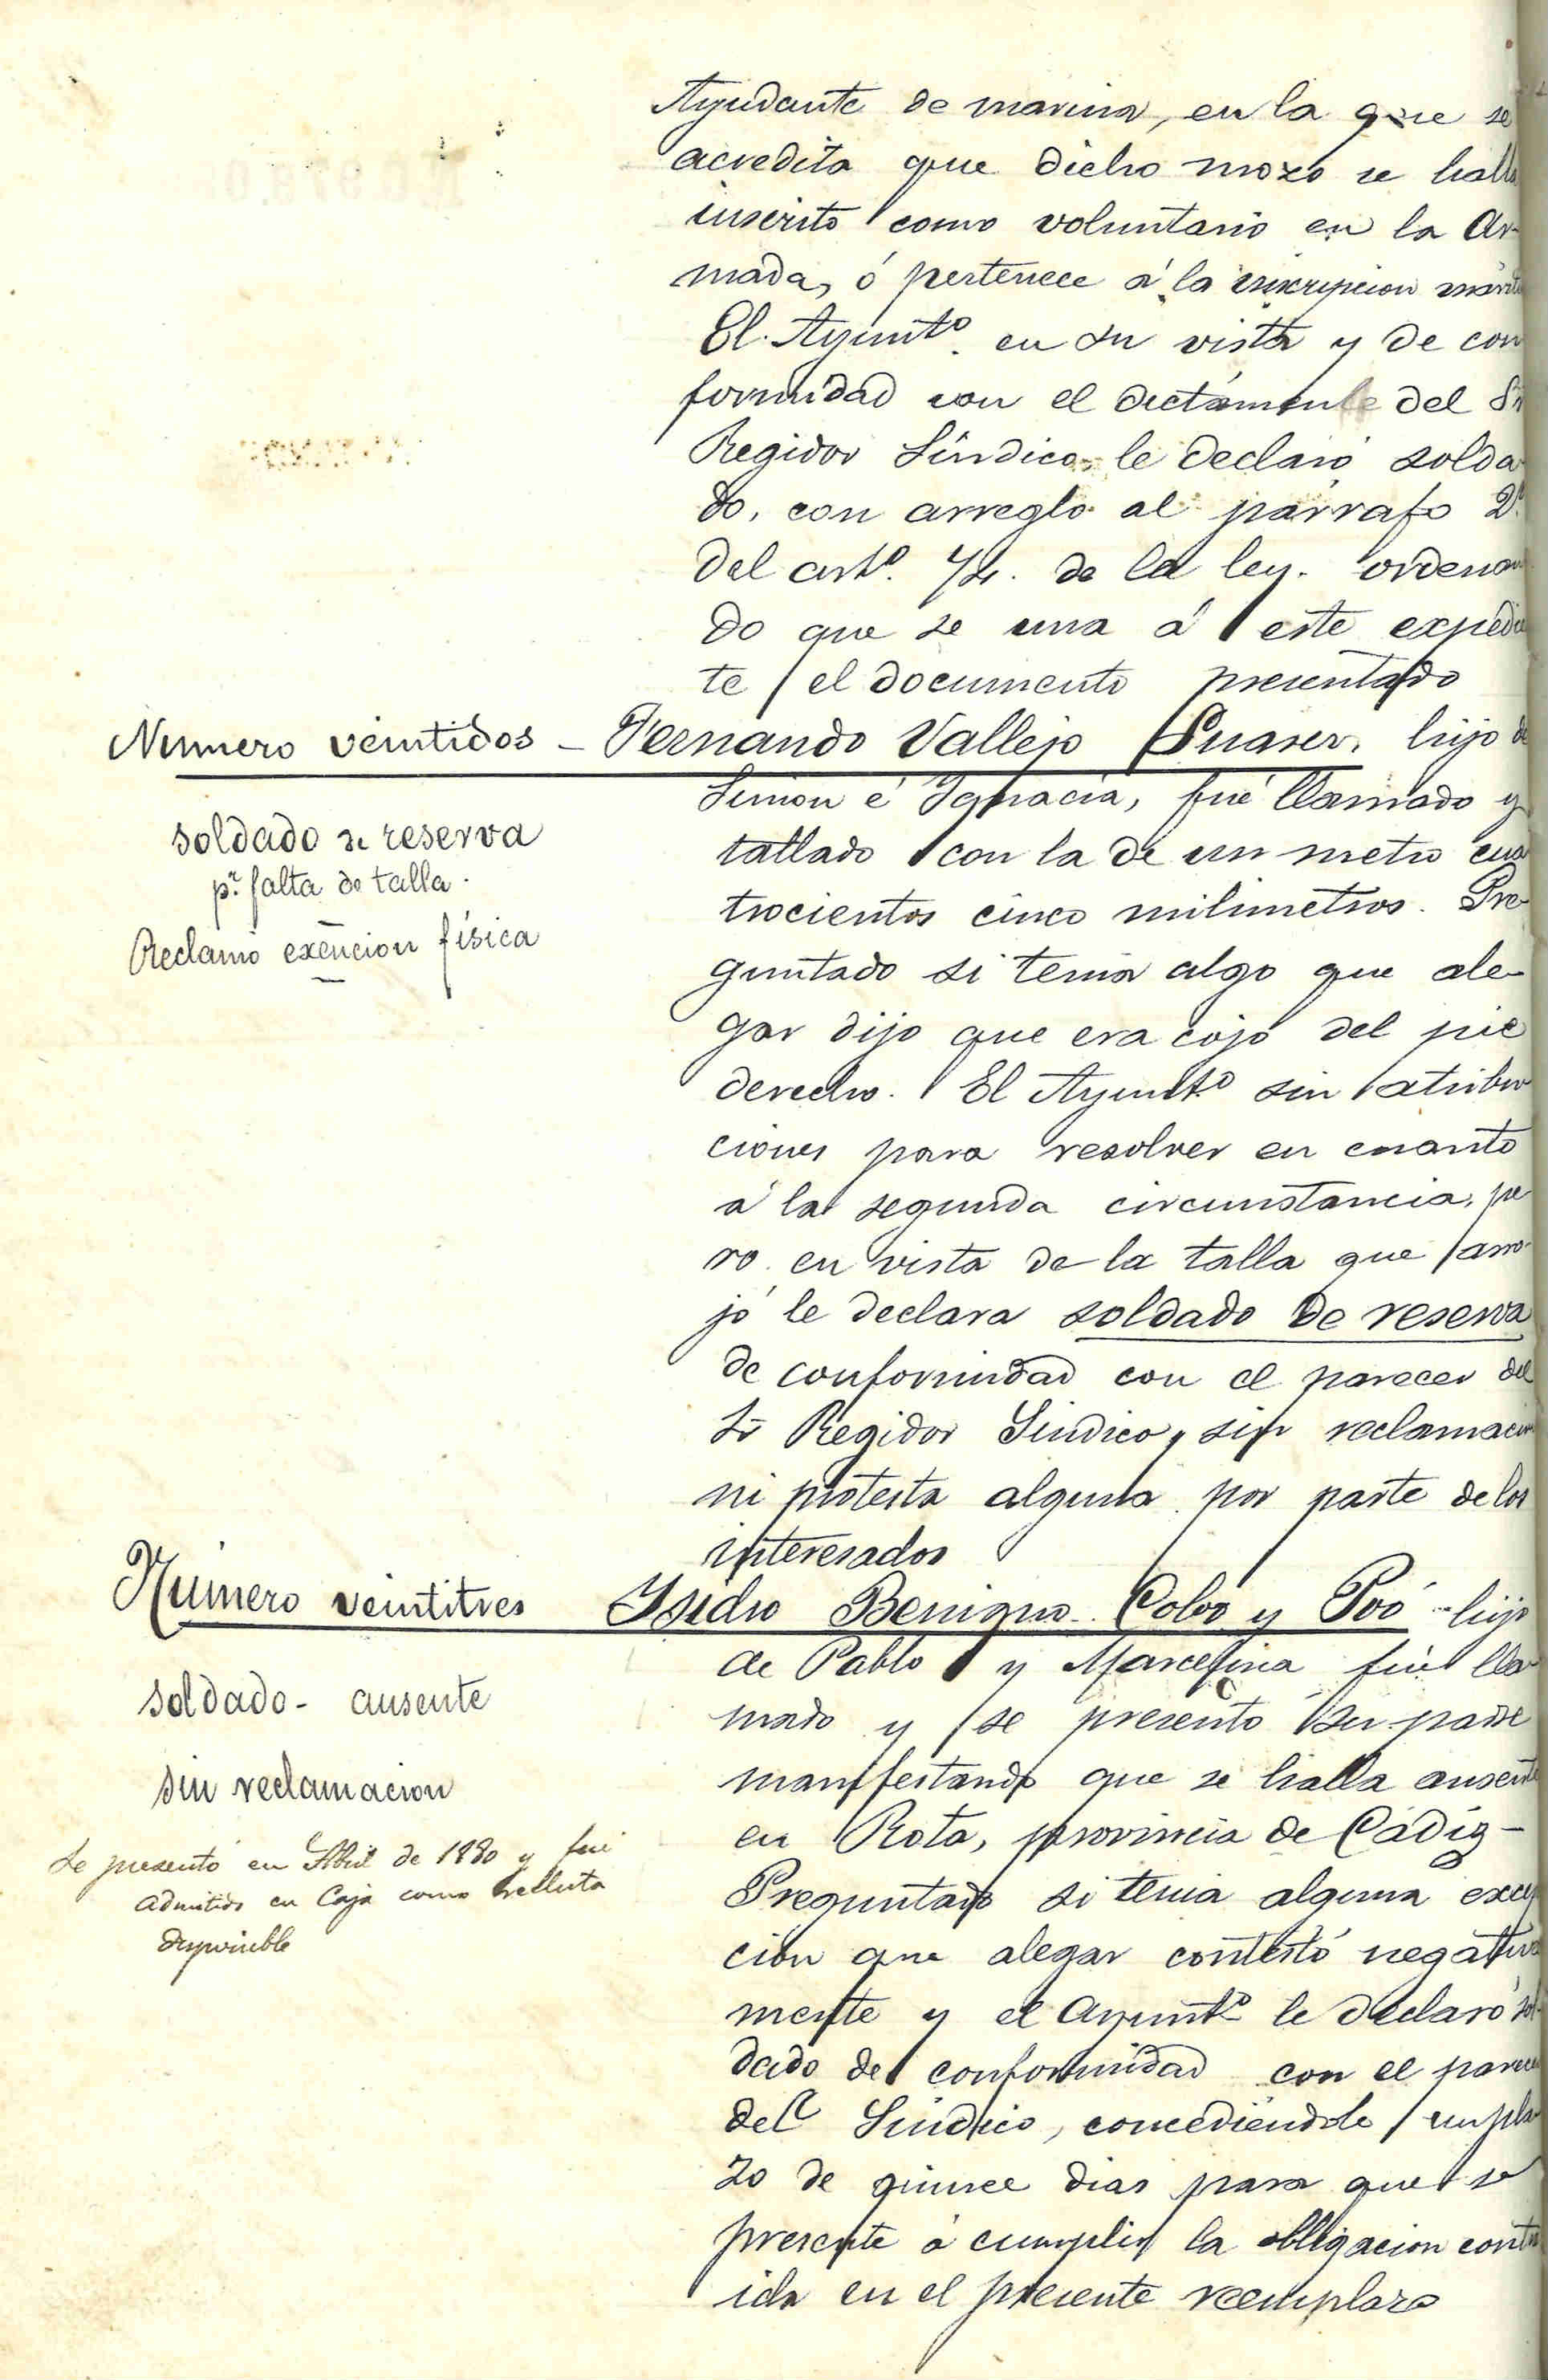 Ayudante de marina, en la que se
acredita que dicho mozo se halla
inscrito como voluntario en la Ar-
mada, ó pertenece á la inscripcion
El Ayuntº. en su vista y de con
formidad con el dictámen del Sr
Regidor Síndico, le declaró solda
do, con arreglo al párrafo 2º
del artº. 74. de la ley. ordenan
do que se una á este expedien
te el documento presentado
Numero veintidos - Fernando Vallejo Suarez, hijo de
Simon é Ignacia, fué llamado y
soldado de reserva
pr. falta de talla.
Reclamó exencion física
tallado con la de un metro cua
trocientos cinco milimetros. Pre-
guntado si tenia algo que ale-
gar dijo que era cojo del pie
derecho. El Ayuntº sin atribu
ciones para resolver en cuanto
á la segunda circunstancia, pe
ro en vista de la talla que arro-
jó le declara soldado de reserva
de conformidad con el parecer del
Sr Regidor Sindico, sin reclamacion
ni protesta alguna por parte de los
interesados
Número veintitres Isidro Benigno Cobo y Poó - hijo
de Pablo y Marcelina fué lla
soldado - ausente
sin reclamacion
Se presentó en Abril de 1880 y fué
admitido en Caja como recluta
disponible
mado y se presentó su padre
manifestando que se halla ausente
en Rota, provincia de Cádiz -
Preguntado si tenia alguna excep
cion que alegar contestó negativa
mente y el Ayuntº le declaró sol
dado de conformidad con el parecer
del Síndico, concediéndole un pla
zo de quince dias para que se
presente á cumplir la obligacion contra
ida en el presente reemplazo